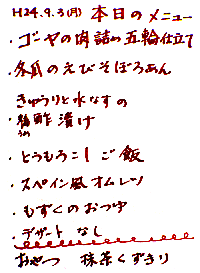 H24.9.3(月) 本日のメニュー
・ゴーヤの肉詰め五輪仕立て
・冬瓜のえびそぼろあん
きゅうりと水なすの
・梅酢漬け
うめ
・とうもろこしご飯
・スペイン風オムレツ
・もずくのおつゆ
・デザート なし
おやつ 抹茶くずきり